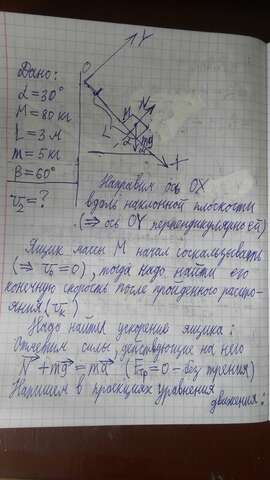 Дано:
α=30°
M=80 кг
L=3 м
m=5 кг
B=60°
v₂=?
O
Y
M
N
L
mg
α
X
Направим ось OX
вдоль наклонной плоскости
(⇒ ось OY перпендикулярно ей)
Ящик массы M начал соскальзывать
(⇒ v₀=0), тогда надо найти его
конечную скорость после пройденного расстро-
яния (vк)
Надо найти ускорение ящика:
Отметим силы, действующие на него
N + mg = ma (Fтр=0 – без трения)
Напишем в проекциях уравнения
движения: